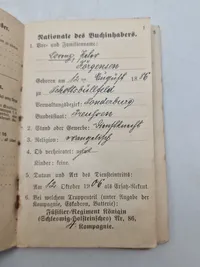 1
Nationale des Buchinhabers.
1. Vor- und Familienname:
Jörgensen
Geboren am 12 ten August 1886
zu
Verwaltungsbezirk: Sonderburg
Bundesstaat: Preußen
2. Stand oder Gewerbe:
3. Religion: evangelisch
4. Ob verheiratet:
Kinder: keine
5. Datum und Art des Diensteintritts:
Am 12. Oktober 1906 als Ersatz-Rekrut.
6. Bei welchem Truppenteil (unter Angabe der
Kompagnie, Eskadron, Batterie):
Füsilier-Regiment Königin
(Schleswig-Holsteinisches) Nr. 86,
Kompagnie.